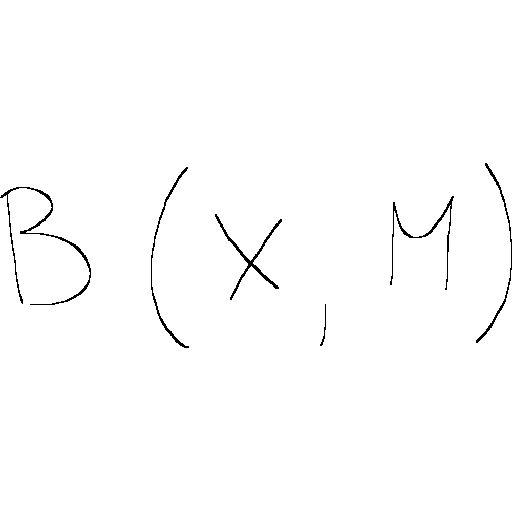 B(X, M)